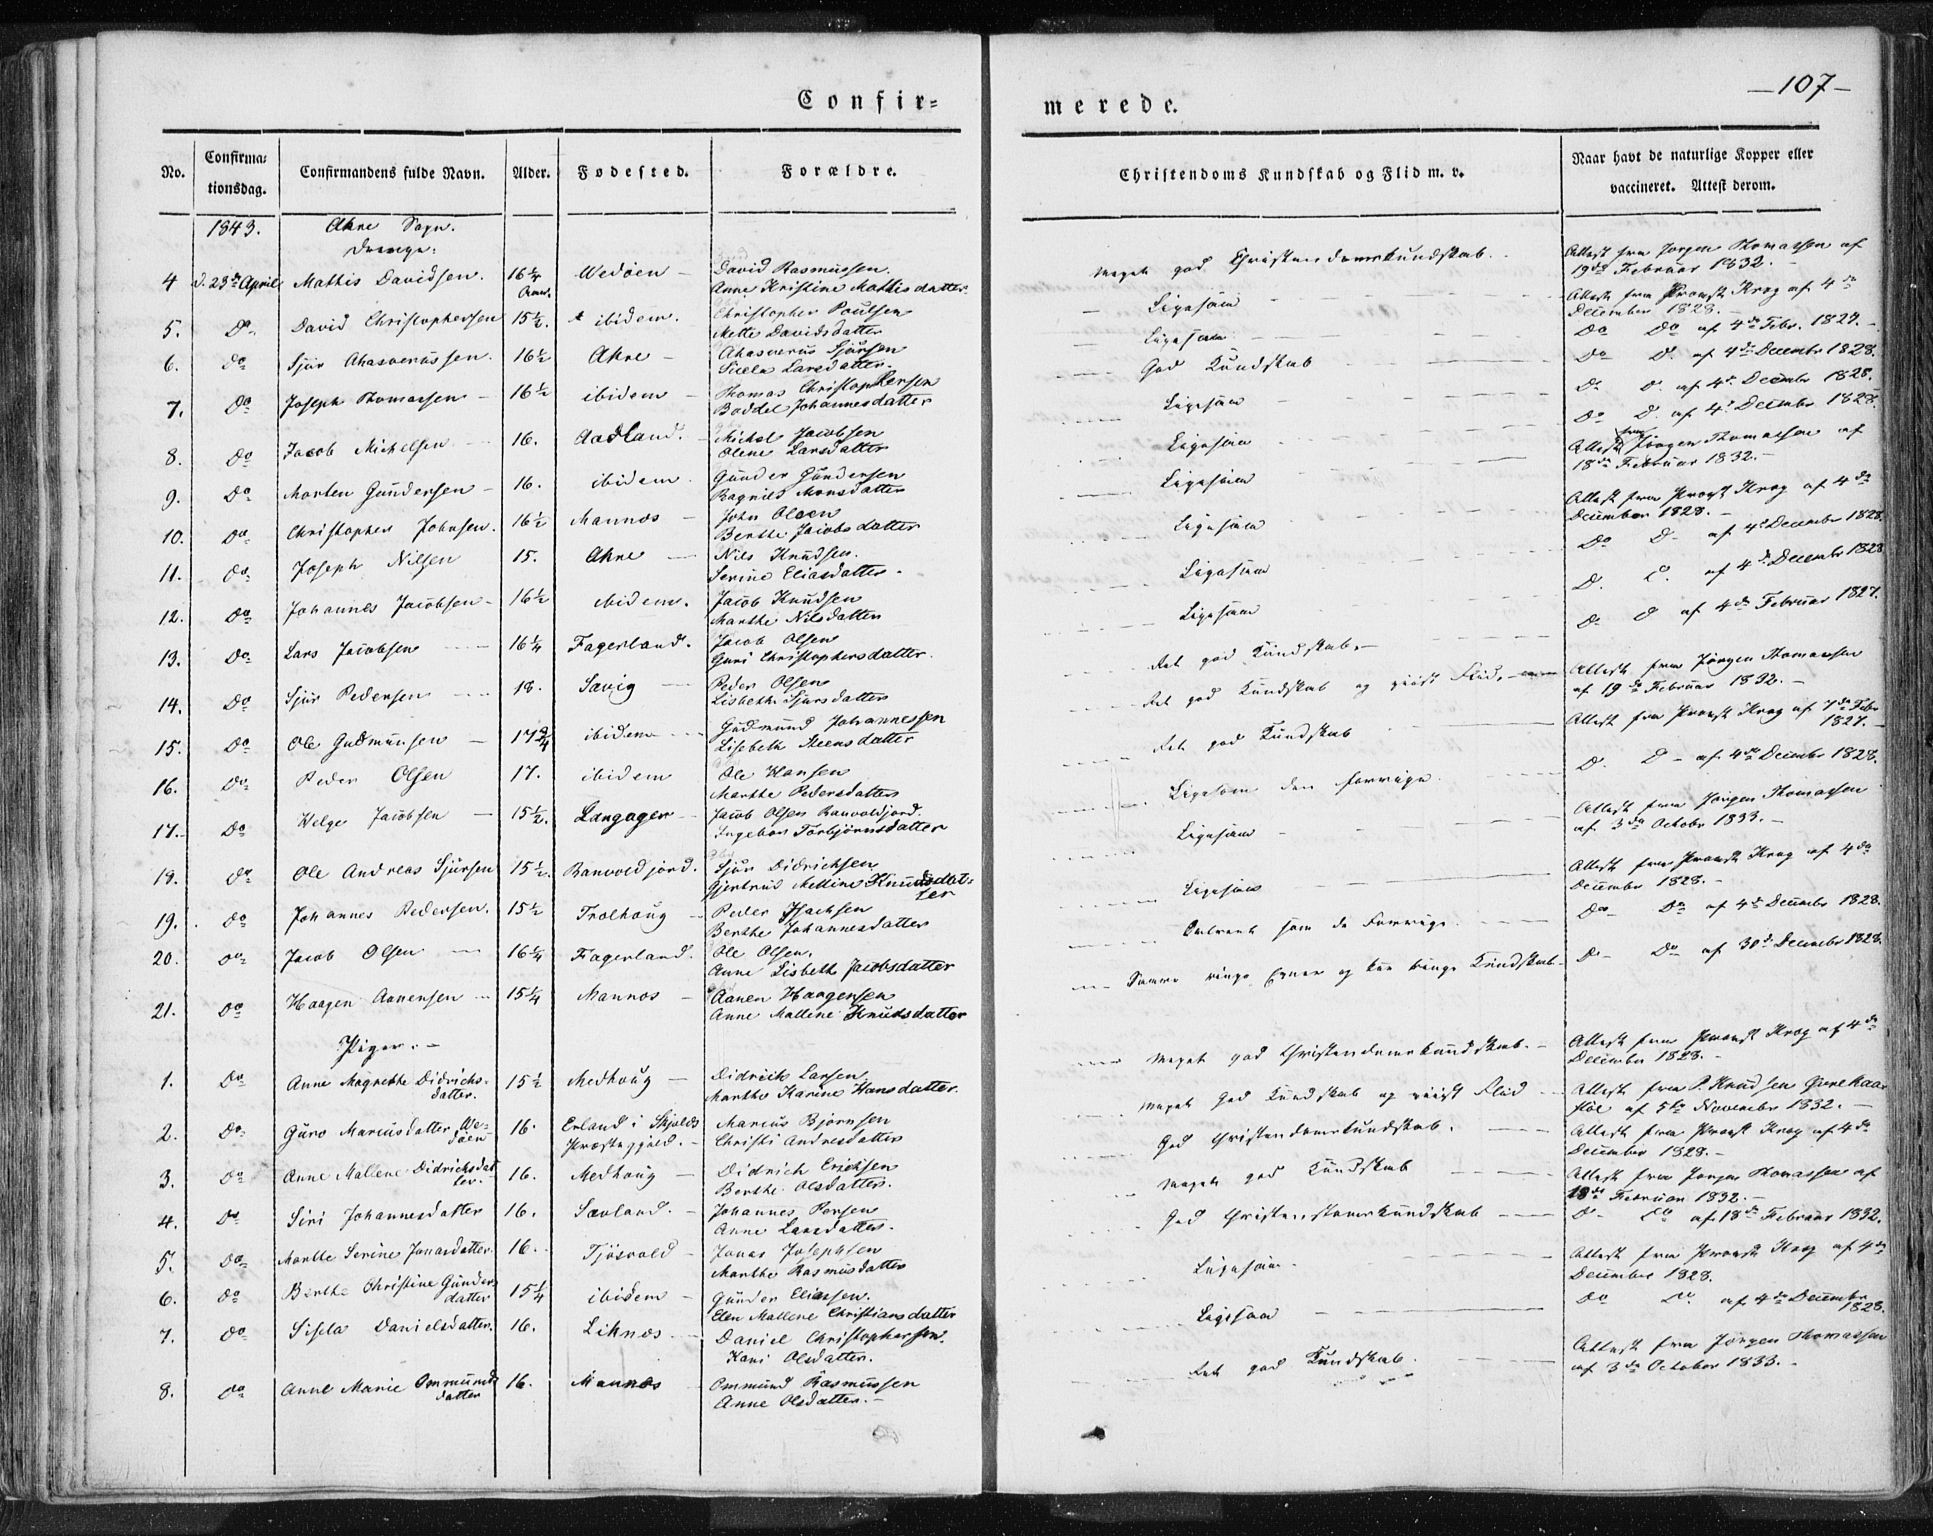 Confir=
merede.
—107—
No.
Confirma=
tionsdag.
Confirmandens fulde Navn.
Alder.
Fødested.
Forældre.
Christendoms Kundskab og Flid m. v.
Naar havt de naturlige Kopper eller
vaccineret. Attest derom.
1843.
Akre Sogn.
Drenge.
4 d. 23de April Mathis Davidsen. 16 1/4 Aar. Wedöen — David Rasmussen.
Anne Kristine Mathisdatter.
Meget god Christendomskundskab. Attest fra Jørgen Thomassen af
19de Februar 1832.—
5. Do David Christophersen 15 1/2. ibidem. Christopher Poulsen
Mette Davidsdatter
Ligesaa Attest fra Provst Krog af 4de
December 1828.—
6. Do Sjur Ahasverussen. 16 1/2 Akre — Ahasverus Sjursen
Sicela Larsdatter.
Ligesaa Do Do af 4de Febr. 1827.—
7. Do Joseph Thomassen — 16 1/2 ibidem — Thomas Christophersen
Boddel Johannesdatter
God Kundskab Do D. af 4de Decembr 1828.
8. Do Jacob Michelsen 16. Aadland. Michel Jacobsen
Olene Larsdatter
Ligesaa D. D. af 4de Decembr 1828.
9. Do Morten Gundersen — 16. ibidem. Gunder Gundersen
Ragnild Monsdatter
Ligesaa Do D. af 4de Decembr 1828.
10. Do Christopher Johnsen. 16 1/2 Mannæs — John Olsen
Berthe Jacobsdatter
Ligesaa Attest fra Jørgen Thomassen af
18de Februar 1832.—
11. Do Joseph Nilsen 15. Akre — Nils Knudsen.
Serine Eliasdatter.
Ligesaa Attest fra Provst Krog af 4de
December 1828.—
12. Do Johannes Jacobsen — 16 1/2 ibidem. Jacob Knudsen
Marthe Nilsdatter
Ligesaa Do D. af 4de December 1828.
13. Do Lars Jacobsen 16 1/4 Fagerland. Jacob Olsen
Guri Christophersdatter.
Ligesaa D. D. af 4de Decembr 1828
14. Do Sjur Pedersen 18. Savig — Peder Olsen
Lisbeth Sjursdatter
Ret god Kundskab.— D. D af 4de Februar 1827.
15. Do Ole Gudmunsen — 17 3/4 ibidem — Gudmund Johannessen
Lisebeth Steensdatter
Ret god Kundskab og Flid. Attest fra Jørgen Thomassen
af 19de Februar 1832.—
16. Do Peder Olsen 17. ibidem Ole Hansen
Marthe Pedersdatter
Ret god Kundskab Attest fra Provst Krog af 7de Febr
1827.—
17. Do Helge Jacobsen — 15 1/2. Langager — Jacob Olsen Ranvoldjord.
Ingebor Torbjørnsdatter
Ligesom den forrige. D. D — af 4de Decembr 1828.
18. Do Ole Andreas Sjursen 15 1/2. Ranvoldjord. Sjur Didrichsen
Gjertrud Melline Knudsdat=
ter
Ligesaa Attest fra Jørgen Thomassen
af 3de Octobr 1833.—
19. Do Johannes Pedersen. 15 1/2 Trolhoug — Peder Isachsen
Berthe Johannesdatter
Ligesaa Attest fra Provst Krog af 4de
December 1828.—
20. Do Jacob Olsen — 16 1/4 Fagerland. Ole Olsen.
Anne Lisbeth Jacobsdatter
som de Forrige. Do Do af 4de Decembr 1828.
21. Do Haagen Aanensen — 15 1/4 Mannæs — Aanen Haagensen
Anne Mallene Knudsdatter
ringe Evner og kun ringe Kundskab. D. Do af 30te Decembr 1828.
Piger.—
1. Do Anne Magrethe Didrichs=
datter. 15 1/2 Medhoug — Didrich Larsen
Marthe Karine Hansdatter.
Meget god Christendomskundskab.— Attest fra Provst Krog af 4de
December 1828.—
2. Do Guro Mariusdatter We=
döen 16. Erland i Skjolds
Præstegjeld.— Marius Bjørnsen
Christi Andresdatter
Meget God Kundskab og Flid Attest fra P. Knudsen
af 5te November 1832.—
3. Do Anne Mallene Didrichsdat
ter. 16. Medhoug — Didrich Erichsen
Berthe Olsdatter.
God Christendomskundskab. Attest fra Provst Krog af 4de
December 1828.—
4. Do Siri Johannesdatter 16. Sævland. Johannes Persen
Anne Larsdatter.
Meget god Kundskab Attest fra Jørgen Thomassen af
18de Februar 1832.—
5. Do Marthe Serine Jonasdatter. 16. Tjösvold — Jonas Josephsen
Marthe Rasmusdatter
God Christendomskundskab D. Do af 18de Februar 1832.
6. Do Berthe Christine Gunders
datter 15 1/4 ibidem — Gunder Eliassen.
Elen Mallene Christiansdatter
Ligesaa. Attest fra Provst Krog af 4de
December 1828.
7. Do Sisela Danielsdatter. 16. Liknæs — Daniel Christophersen.
Kari Olsdatter.
Ligesaa Do Do af 4de Decembr
1828.
8. Do Anne Marie Ommunds
datter 16. Mannæs Ommund Rasmussen
Anne Olsdatter.—
Ret god Kundskab. Attest fra Jørgen Thomassen
af 3de October 1833.—